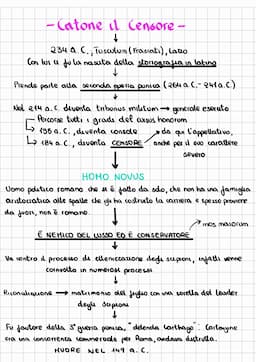 - Catone il Censore -
234 a.C., Tusculum (Frascati), Lazio
Con lui si fa la nascita della storiografia in latino
Prende parte alla seconda guerra punica (264 a.C. - 241 a.C.)
Nel 214 a.C. diventa tribunus militum → generale esercito
Percorse tutti i gradi del cursus honorum
195 a.C., diventa console
184 a.C., diventa CENSORE
da qui l'appellativo, anche per il suo carattere severo
HOMO NOVUS
Uomo politico romano che si è fatto da solo, che non ha una famiglia
aristocratica alle spalle che gli ha costruito la carriera e spesso proviene
da fuori, non è romano.
mos maiorum
È NEMICO DEL LUSSO ED È CONSERVATORE
Va contro il processo di ellenizzazione degli scipioni, infatti venne
coinvolto in numerosi processi
Riconciliazione → matrimonio del figlio con una sorella del leader
degli Scipioni
Fu fautore della 3° guerra punica, "delenda Carthago". Cartagine
era una concorrente commerciale per Roma, andava distrutta.
MUORE NEL 149 a.C.